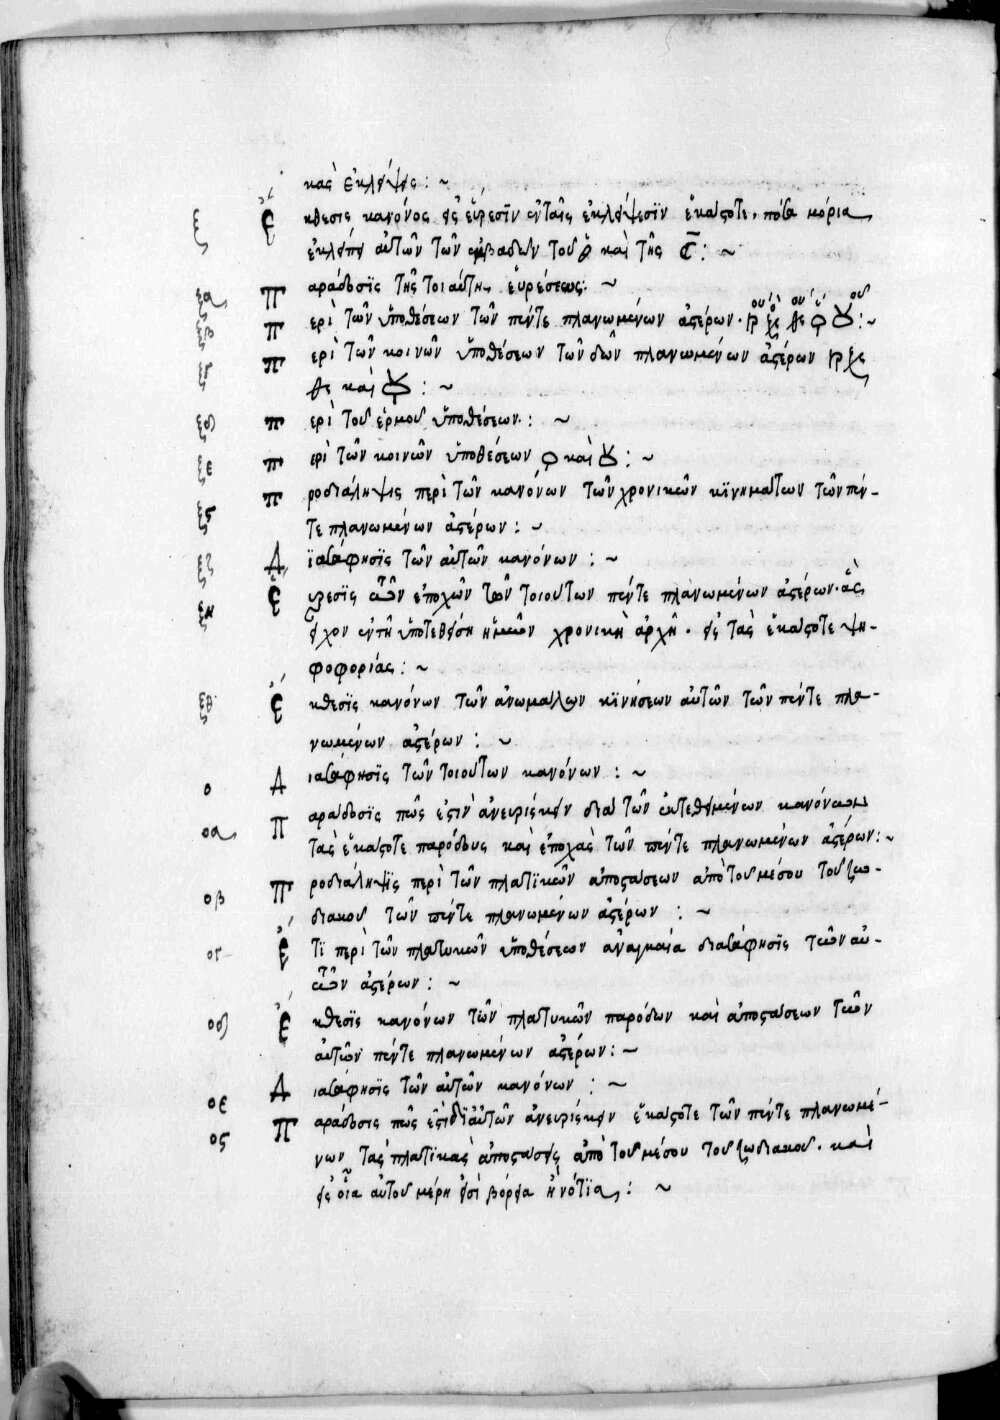 κὰς ἐκλείψεις : ~
ξ Ἔκθεσις κανόνος εἰς εὕρεσϊν ἐν ταῖς ἐκλείψεσϊν ἑκάστοτε, πόσα μόρια
ἐκλείπει αὐτῶν τῶν ἐμβαδῶν τοῦ καὶ τῆς ☾ : ~
ξα Παράδοσϊς τῆς τοιαύτης εὑρέσεως : ~
ξβ Περὶ τῶν ὑποθέσεων τῶν πέντε πλανωμένων ἀστέρων · : ~
ξγ Περὶ τῶν κοινῶν ὑποθέσεων τῶν πλανωμένων ἀστέρων
καὶ ♀ : ~
ξδ Περὶ τοῦ ἑρμοῦ ὑποθέσεων : ~
ξε Περὶ τῶν κοινῶν ὑποθέσεων ♀ καὶ ☿ : ~
ξς Προδιάληψις περὶ τῶν κανόνων τῶν χρονικῶν κϊνημάτων τῶν πέν-
τε πλανωμένων ἀστέρων : ~
ξζ Δϊασάφησϊς τῶν αὐτῶν κανόνων : ~
ξη Εὕρεσϊς τῶν ἐποχῶν τῶν τοιούτων πέντε πλανωμένων ἀστέρων · ἃς
εἶχον ἐν τῆ ὑποτεθείση ἡμῖν χρονικῆ ἀρχῆ · εἰς τὰς ἑκάστοτε ψη-
φοφορίας : ~
ξθ Ἔκθεσϊς κανόνων τῶν ἀνωμάλων κϊνήσεων αὐτῶν τῶν πέντε πλα-
νωμένων ἀστέρων : ~
ο Διασάφησϊς τῶν τοιούτων κανόνων : ~
οα Παράδοσϊς πῶς ἐστὶν ἀνευρίσκειν διὰ τῶν ἐκτεθειμένων κανόνων
τὰς ἑκάστοτε παρόδους καὶ ἐποχὰς τῶν πέντε πλανωμένων ἀστέρων : ~
οβ Προδιάληψϊς περὶ τῶν πλατϊκῶν ἀποστάσεων ἀπὸ τοῦ μέσου τοῦ ζω-
διακοῦ τῶν πέντε πλανωμένων ἀστέρων : ~
ογ Ἔτϊ περὶ τῶν πλατυκῶν ὑποθέσεων ἀναγκαία διασάφησϊς τῶν αὐ-
τῶν ἀστέρων : ~
οδ Ἔκθεσϊς κανόνων τῶν πλατυκῶν παρόδων καὶ ἀποστάσεων τῶν
αὐτῶν πέντε πλανωμένων ἀστέρων : ~
οε Διασάφησϊς τῶν αὐτῶν κανόνων : ~
ος Παράδοσις πῶς ἐστὶ δϊ αὐτῶν ἀνευρίσκειν ἑκάστοτε τῶν πέντε πλανωμέ-
νων τὰς πλατϊκὰς ἀποστάσεις ἀπὸ τοῦ μέσου τοῦ ζωδιακοῦ · καὶ
εἰς οἷα αὐτοῦ μέρη εἰσὶ βόρεια ἢ νότϊα : ~